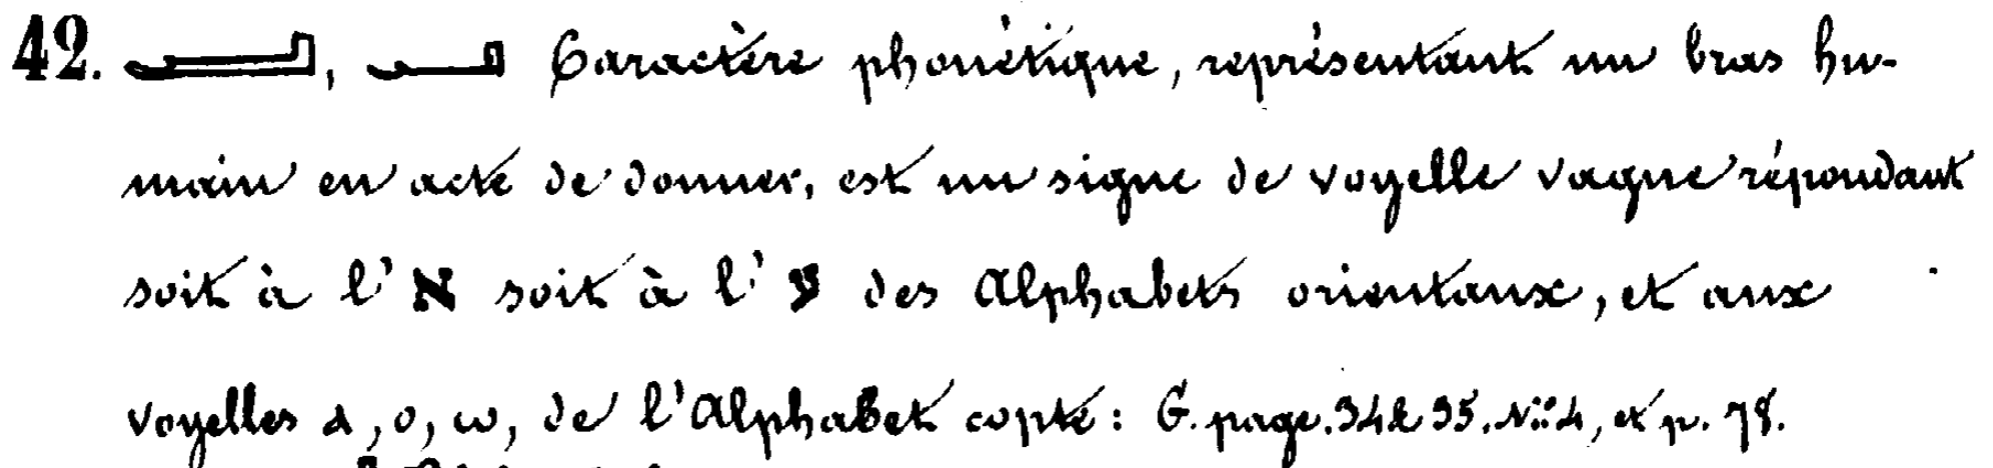 42. 𓂝, 𓂝 Caractère phonétique, représentant un bras hu-
main en acte de donner, est un signe de voyelle vague répondant
soit à l'א soit à l'ע des Alphabets orientaux, et aux
voyelles ⲁ, ⲟ, ⲱ, de l'Alphabet copte: G. page. 34 & 35. N.º 4, et p. 78.